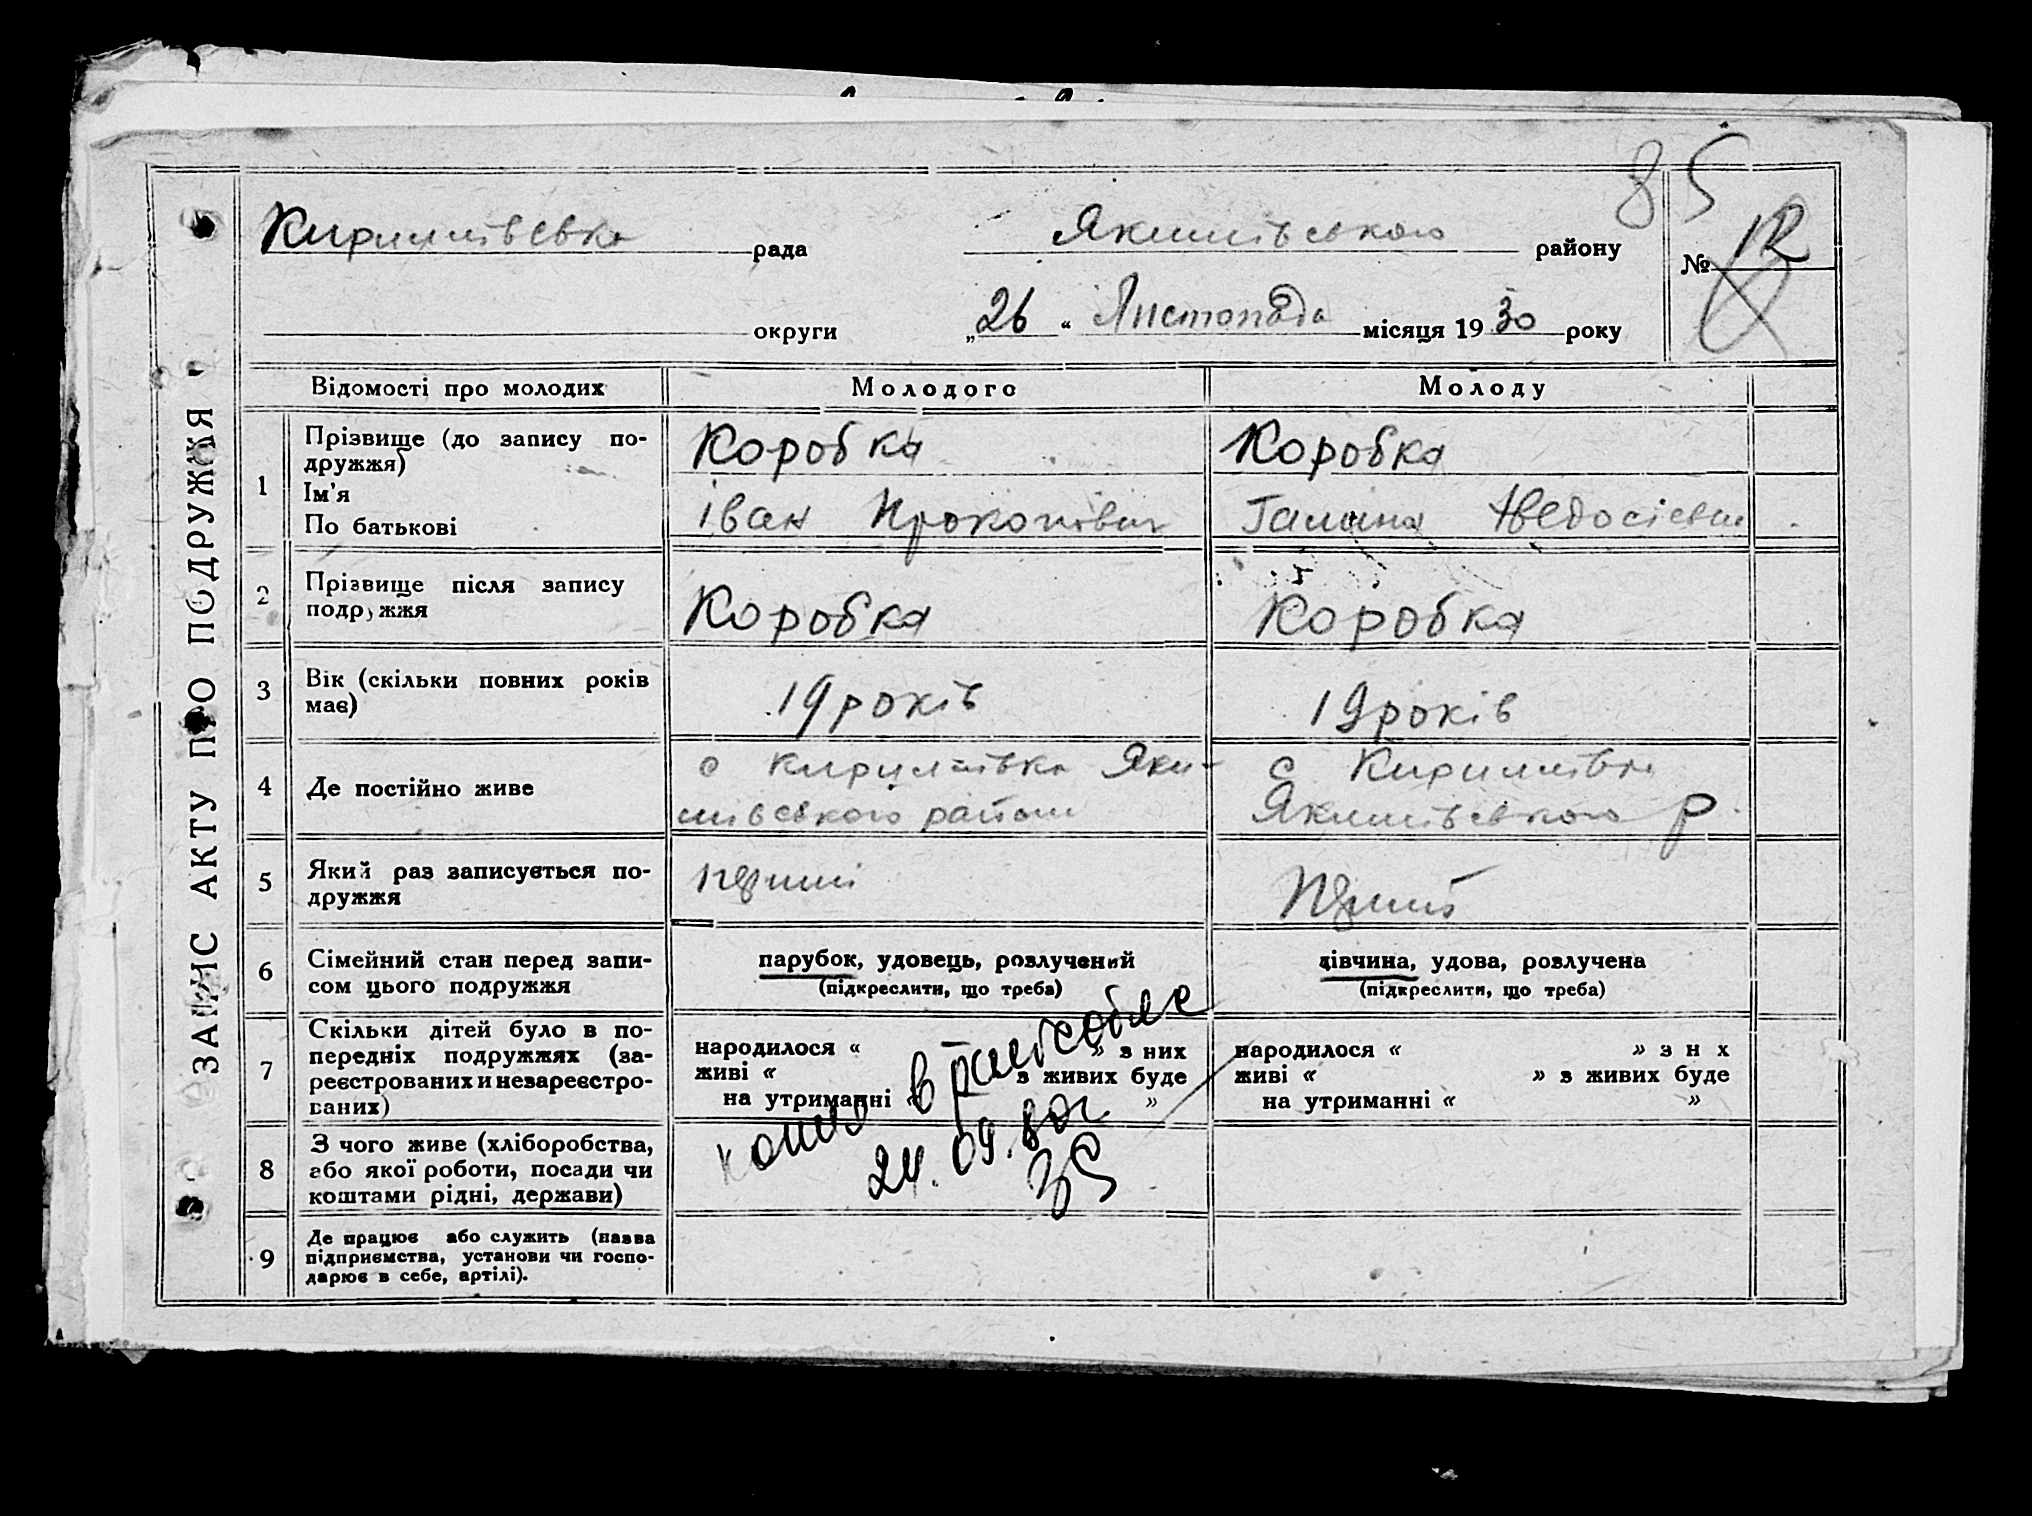 85
Кирилівська рада Якимівського району № 12
округи „26“ Листопада місяця 1930 року
ЗАПИС АКТУ ПРО ПОДРУЖЖЯ
Відомості про молодих Молодого Молоду
1 Прізвище (до запису по-
дружжя)
Коробка Коробка
Ім'я
По батькові
Іван Прокопівич Галина Федосіевна
2 Прізвище після запису
подружжя
Коробка Коробка
3 Вік (скільки повних років
має)
19 років 19 років
4 Де постійно живе
с Кирилівка Яки-
мівського району
с Кирилівка
Якимівського р.
5 Який раз записується по-
дружжя
перший перший
6 Сімейний стан перед запи-
сом цього подружжя
парубок, удовець, розлучений
(підкреслити, що треба)
дівчина, удова, розлучена
(підкреслити, що треба)
7 Скільки дітей було в по-
передніх подружжях (за-
реєстрованих и незареєстро-
ваних)
народилося « » з них
живі « з живих буде
на утриманні « »
народилося « » з н х
живі « » з живих буде
на утриманні « »
8 З чого живе (хліборобства,
або якої роботи, посади чи
коштами рідні, держави)
копия в
24.09.80г
9 Де працює або служить (назва
підприємства, установи чи госпо-
дарює в себе, артілі).